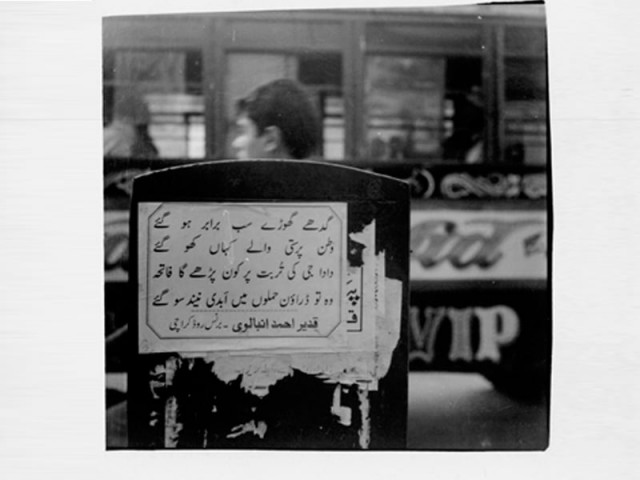 گدھے گھوڑے سب برابر ہو گئے
وطن پرستی والے کہاں کھو گئے
دادا جی کی تُربت پر کون پڑھے گا فاتحہ
وہ تو ڈراؤن حملوں میں اَبدی نیند سو گئے
قدیر احمد انبالوی ۔ برنس روڈ کراچی
VIP